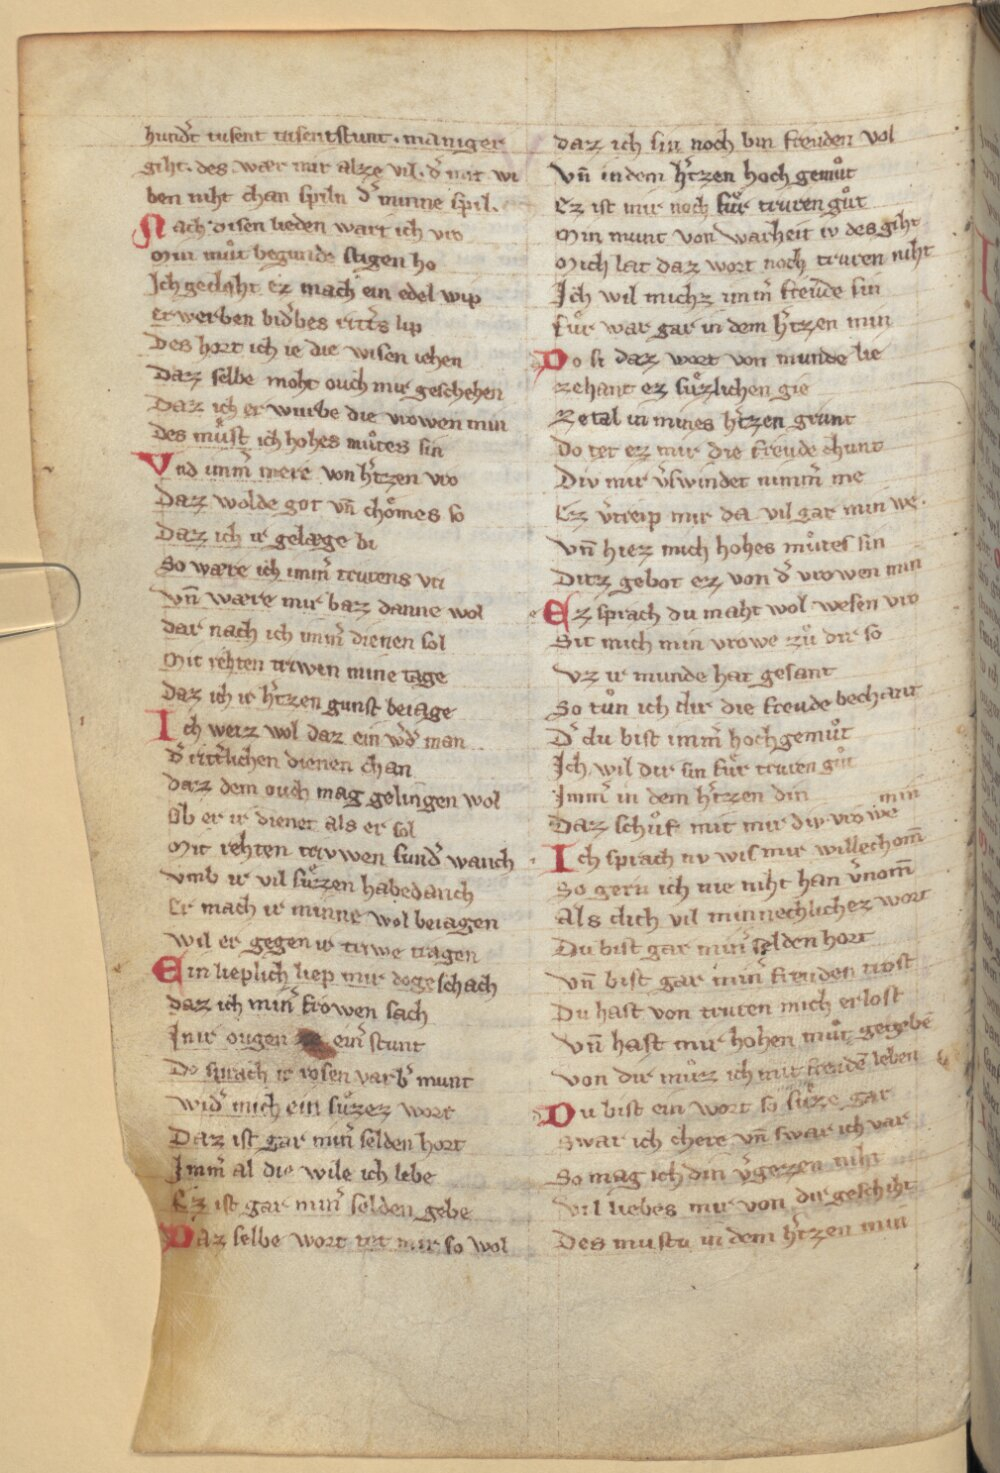 hundt͛ tusent tusentstunt · maniger
giht · des wær mir alze vil · d͛ mit wi
ben niht chan spiln d͛ minne spil ·
Nach disen lieden wart ich vro
Min můt begunde stigen ho
Ich gedaht ez mach ein edel wip
Erwerben bid͛bes ritt͛s lip
Des hort ich ie die wisen iehen
Daz selbe moht ouch mir geschehen
Daz ich er wurbe die vrowen min
Des můst ich hohes můtes sin
Vnd imm͛ mere von h͛tzen vro
Daz wolde got vn̄ chômes so
Daz ich ir gelæge bi
So wære ich imm͛ trurens vri
Vn̄ wære mir baz danne wol
dar nach ich imm͛ dienen sol
Mit rehten triwen mine tage
Daz ich ir h͛tzen gunst beiage
Ich weiz wol daz ein w͛d͛ man
d͛ ritt͛lichen dienen chan
daz dem ouch mag gelingen wol
Ob er ir dienet als er sol
Mit rehten trivwen sund͛ wanch
vmb ir vil sůzzen habedanch
Er mach ir minne wol beiagen
wil er gegen ir triwe tragen
Ein lieplich liep mir do geschach
daz ich min͛ frowen sach
In ir ougen ein͛ stunt
Do sprach ir rosen varb͛ munt
wid͛ mich ein sůzez wort
Daz ist gar min͛ selden hort
Imm͛ al die wile ich lebe
Ez ist gar min͛ selden gebe
Daz selbe wort tet mir so wol
daz ich sin noch bin freuden vol
Vn̄ in dem h͛tzen hoch gemůt
Ez ist mir noch fůr truren gůt
Min munt von warheit iv des giht
Mich lat daz wort noch truren niht
Ich wil michz imm͛ freun̄de sin
fůr war gar in dem h͛tzen min
Do si daz wort von munde lie
zehant ez sůzlichen gie
Zetal in mines h͛tzen grunt
Do tet ez mir die freude chunt
Div mir v͛swindet nimm͛ me
Ez v͛treip mir da vil gar min we ·
Vn̄ hiez mich hohes můtes sin
Ditz gebot ez von d͛ vrowen min
Ez sprach du maht wol wesen vro
Sit mich min vrowe zů dir so
Vz ir munde hat gesant
So tůn ich dir die freude bechant
D͛ du bist imm͛ hochgemůt
Ich wil dir sin fůr truren gůt
Imm͛ in dem h͛tzen din
Daz schůf mit mir div vrowe min
Ich sprach nv wis mir willechom̄
So gern ich nie niht han v͛nom̄
Als dich vil minnechlichez wort
Du bist gar min͛ selden hort
Vn̄ bist gar min͛ freuden trost
Du hast von truren mich erlost
Vn̄ hast mir hohen můt gegebē
von dir můz ich mit freudē leben
Du bist ein wort so sůze gar
Swar ich chere vn̄ swar ich var
So mag ich din v͛gezzen niht
Vil liebes mir von dir geschiht
Des mustu in dem h͛tzen min